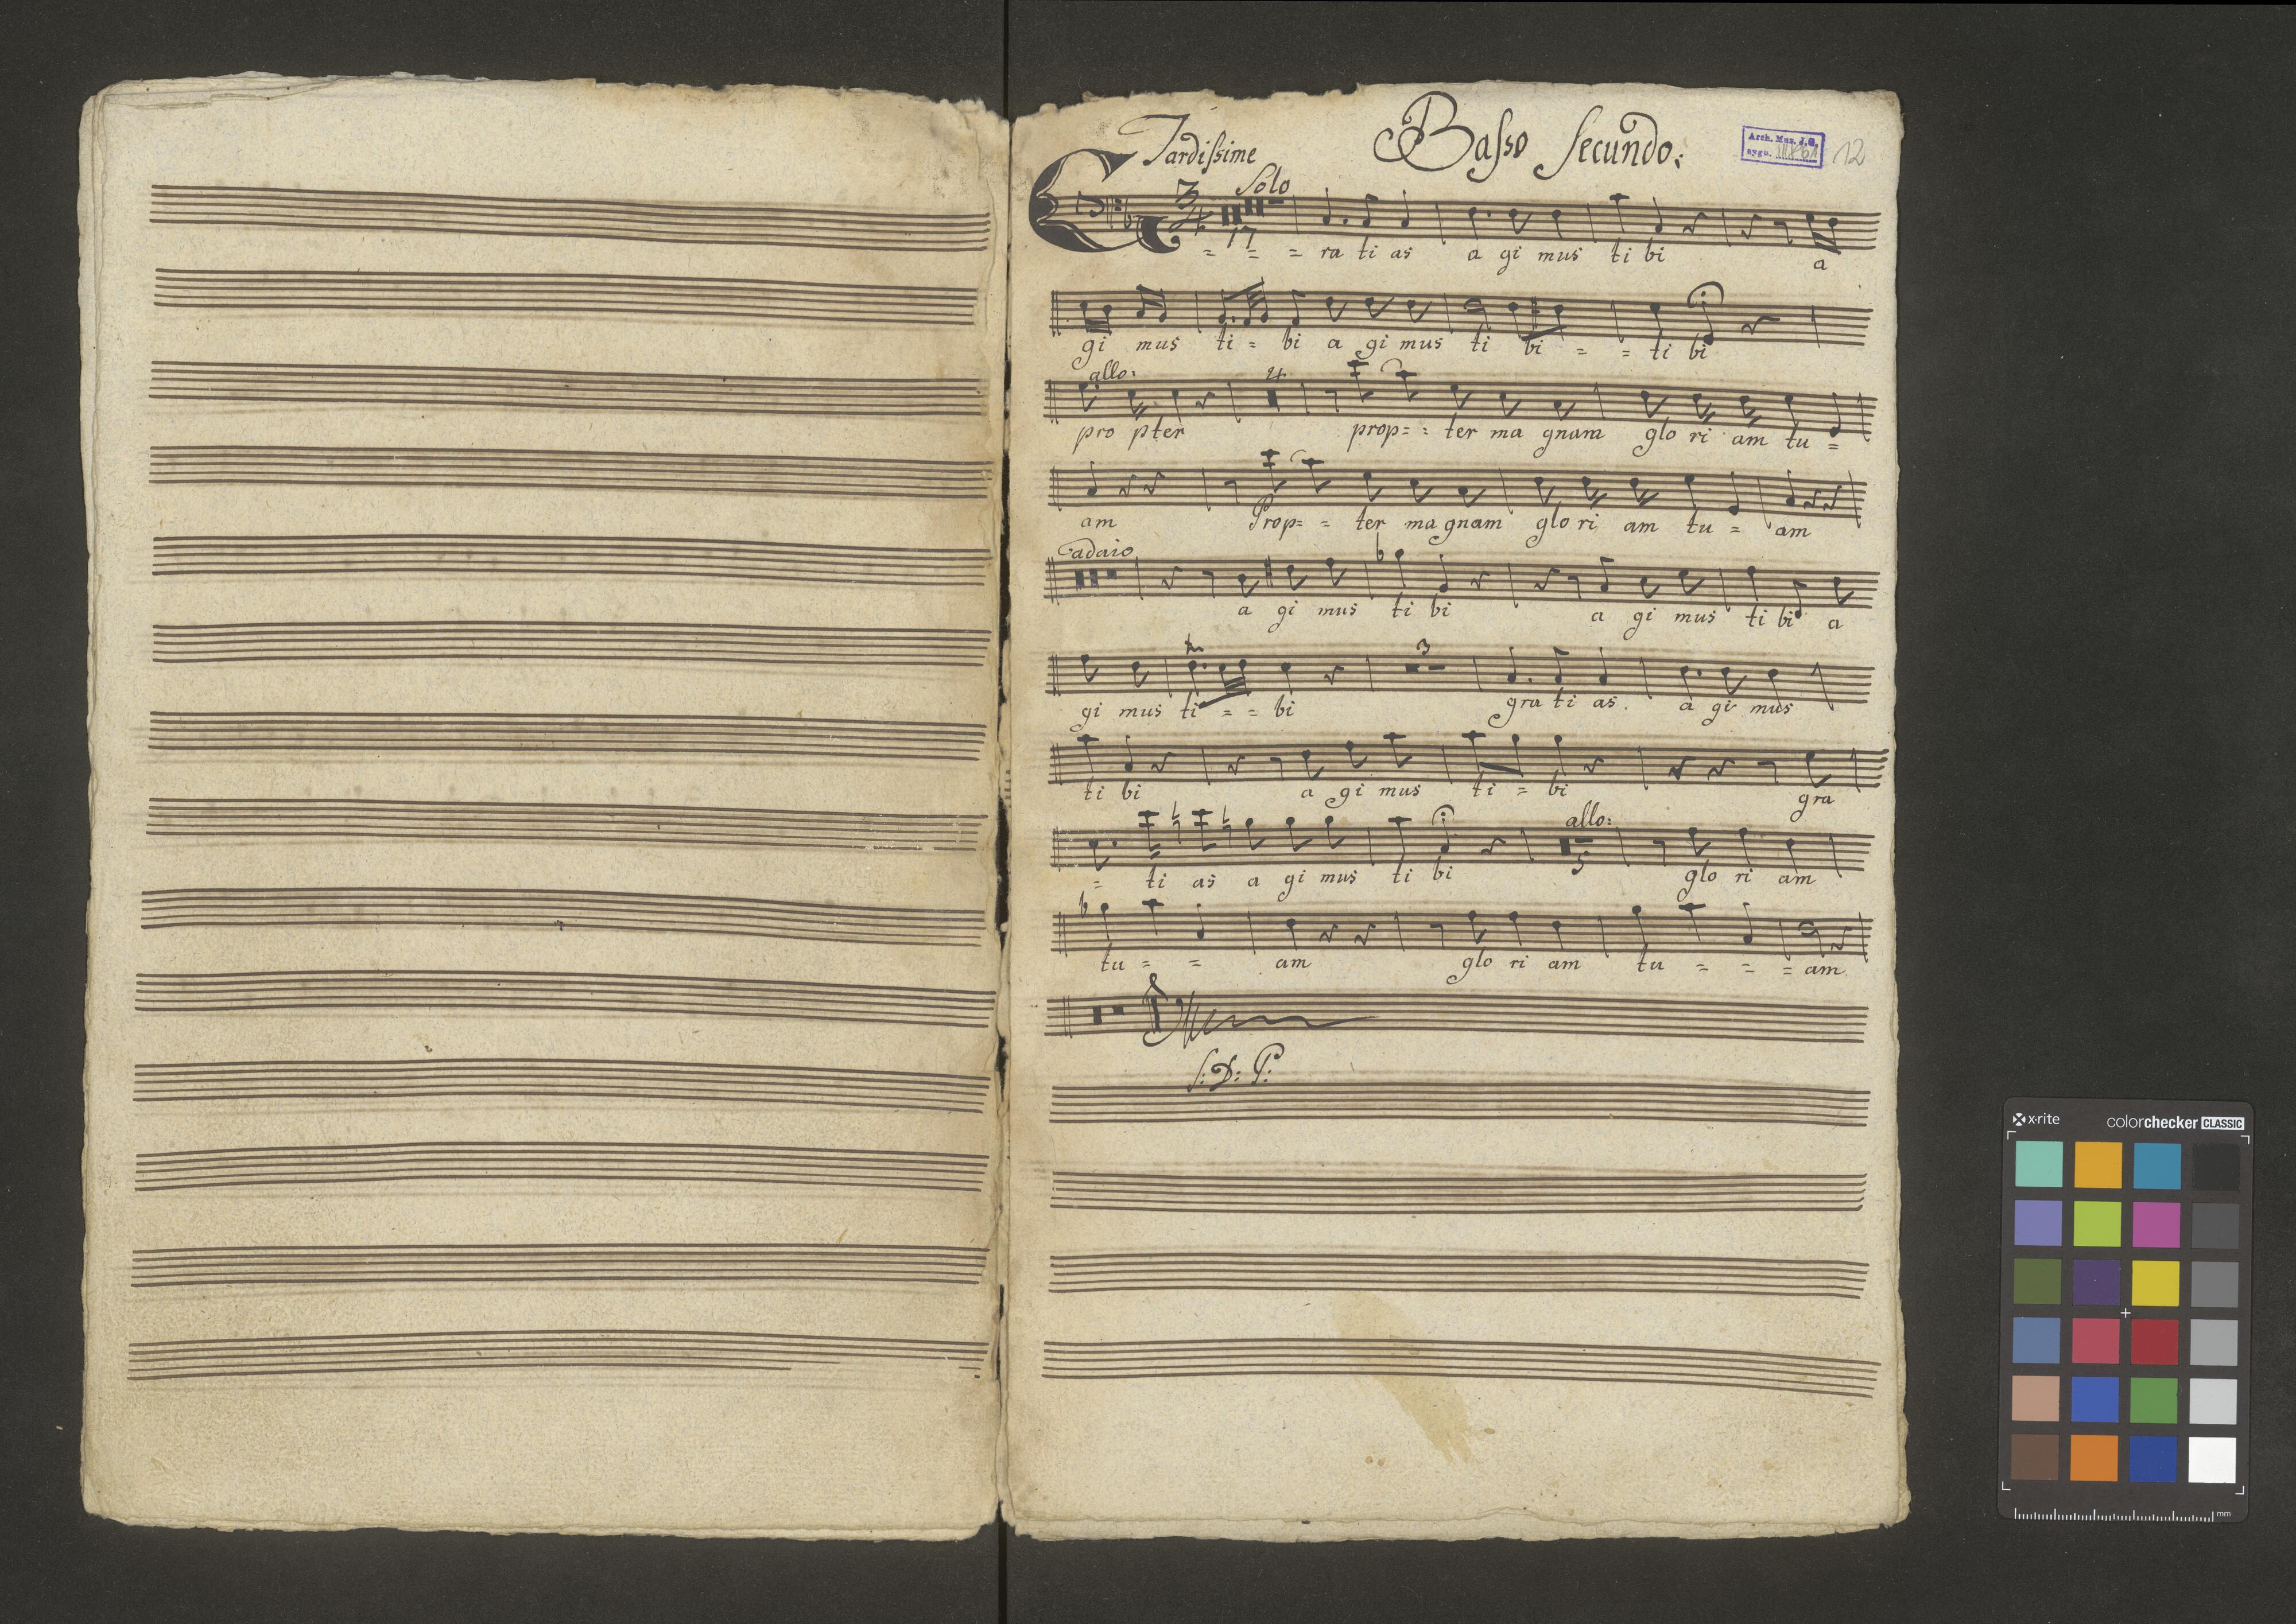 Tardiſsime Baſso Secundo:
Arch. Muz. J.G.
sygn.
12
Solo
3/4
17
G = = = ra ti as a gi mus ti bi a
gi mus ti = bi a gi mus ti bi = = ti bi
allo:
4
pro pter prop= = ter ma gnam glo ri am tu =
am Prop= = ter ma gnam glo ri am tu = am
adaio
a gi mus ti bi a gi mus ti bi a
3
gi mus ti = = bi gra ti as. a gi mus
ti bi a gi mus ti = bi gra
allo:
5
= ti as a gi mus ti bi glo ri am
tu = = am glo ri am tu = = = am
S: D: G:
x·rite colorchecker CLASSIC
mm